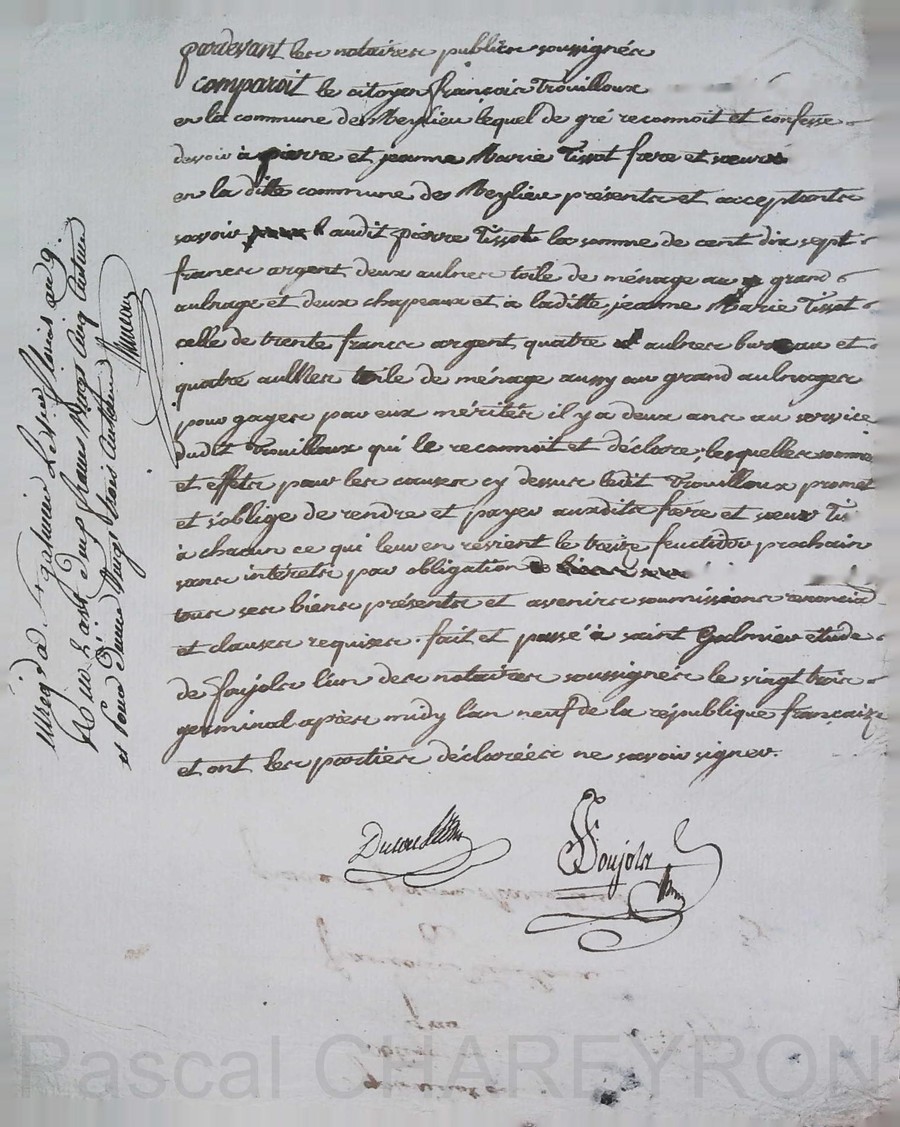 pardevant les notaires publics soussignés
comparoit le citoyen françois Trouilloux
en la commune de Meylieu lequel de gré reconnoit et confesse
devoir à pierre et jeanne Marie Tissot frere et sœur
en la ditte commune de Meylieu présents et acceptants
savoir audit pierre Tissot la somme de cent dix sept
francs argent, deux aulnes toile de ménage au grand
aulnage et deux chapeaux et à laditte jeanne Marie Tissot
celle de trente francs argent quatre aulnes bureau et
quatre aulnes toile de ménage aussy au grand aulnage
pour gages par eux mérités il y a deux ans au service
dudit Trouilloux qui le reconnoit et déclare; lesquelles somme
et effets pour les causes cy dessus ledit Trouilloux promet
et s'oblige de rendre et payer auxdits frere et sœur Ti
à chacun ce qui leur en revient le treize fructidor prochain
sans intérêts par obligation
tous ses biens présents et avenirs soumissions renonciat
et clauses requises. fait et passé à saint Galmier étude
de Soujols l'un des notaires soussignés le vingt trois
germinal après midy l'an neuf de la république françaize
et ont les parties déclarées ne savoir signer.
Soujols
Enreg. à St galmier Le six floréal an 9.
Reçu francs vingt cinq centimes
et pour vingt trois centimes
Pascal CHAREYRON